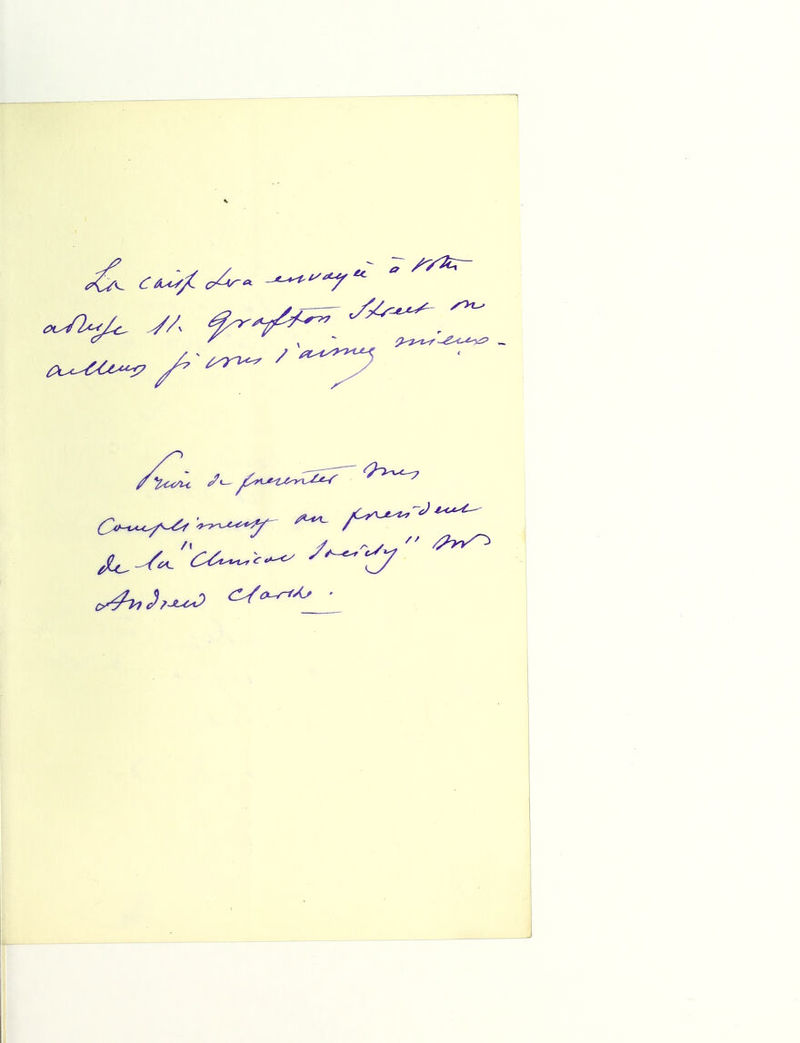 La caisse sera envoyée à votre
adresse 11. Grafton Street ou
ailleurs si vous l'aimez mieux -
Prière de presenter mes
Compliments au president
de la "Clinical Society" Mr
Andrew Clarke.